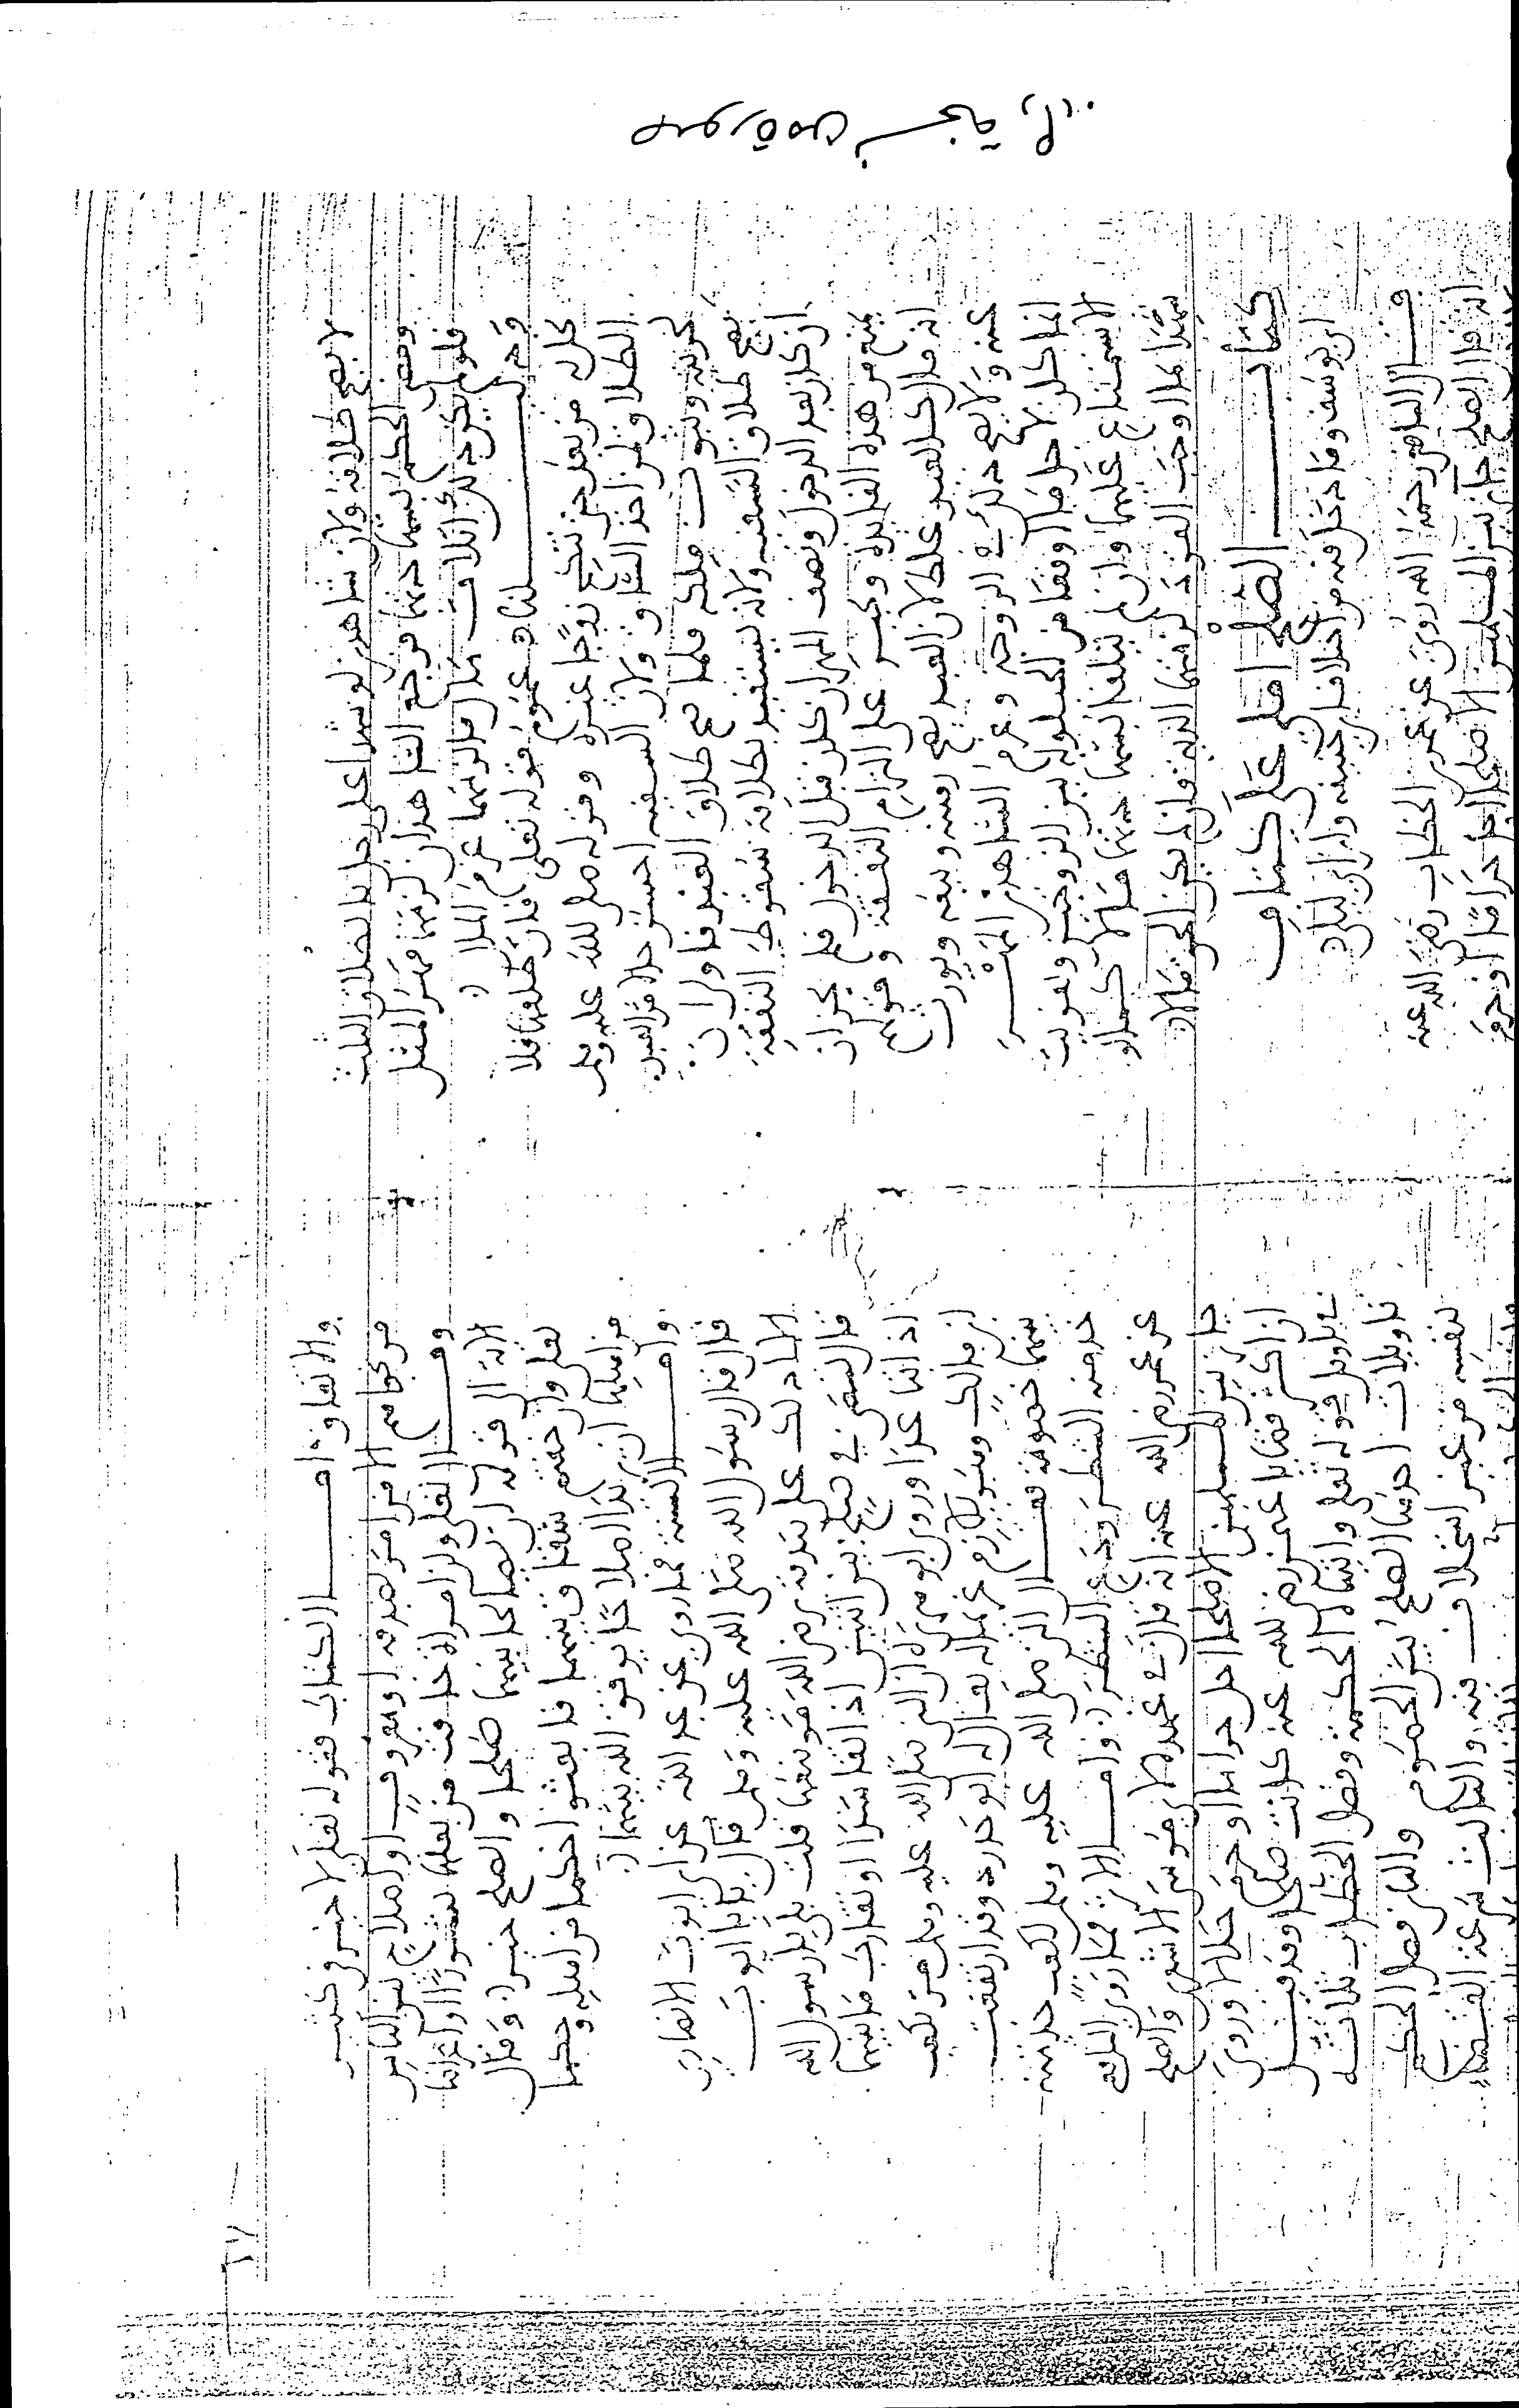 صورة من نسخة
لا يصح طلاقه ولان شاهدين لو شهدا على رجل بالطلاق الثلث
وقضى الحاكم بشهادتهما ثم رجع الشاهدان لزمهما مهر المثل
فلو لم يكن ذلك اتلاف مال ما لزمهما غرم المال
ودليلنا عموم قوله تعلى فان طلقها فلا
تحل له من بعد حتى تنكح زوجا غيره وقوله صلى الله عليه وسلم
الطلاق لمن اخذ بالساق ولان السفيه احسن حالا من العبد
لحريته وثبوت ملكه فلما صح طلاق العبد فاولى ان
يصح طلاق السفيه ولانه يستفيد بطلاقه سقوط النفقة
ان كان بعد الدخول ونصف المهر ان كان قبل الدخول فلم يجز ان
يمنع من هذه الفايدة ويجبر على التزام النفقة وقولهم
انه مال كالعبد غلط لان العبد يصح رهنه وبيعه ويورث
عنه ولا يصح ذلك في الزوجة وغرم الشاهدين المهر
انما كان اوقعا من الحيلولة بين الزوجين وتفويت
الاستمتاع عليهما وان لم يتلفا بشهادتهما مالا كما لو
شهدا بما اوجب القود لزمتهما الدية وان لم يكن الحق مالا
كتاب الصلح املى على كتاب
ابي يوسف وما دخل فيه من اختلاف ابي حنيفة وابن ابي ليلى
قال الشافعي رحمة الله روي عن عمر بن الخطاب رضي الله عنه
انه قال الصلح جائز بين المسلمين الا صلحا احل حراما او حرم
والاتفاق اما الكتاب فقوله تعلى لا خير في كثير
من نجواهم الا من امر بصدقة او معروف او اصلاح بين الناس
وقال تعلى وان امراة خافت من بعلها نشوزا او اعراضا
الاية الى قوله ان يصالحا بينهما صلحا والصلح خير وقال
تعلى وان خفتم شقاق بينهما فابعثوا حكما من اهله وحكما
من اهلها ان يريدا اصلاحا يوفق الله بينهما
واما السنة فما روي عن عبد الله عن ابي ايوب الانصاري
قال قال رسول الله صلى الله عليه وسلم قال يا ابا ايوب
الا ادلك على صدقة يرضى الله موضعها قلت بلى يا رسول الله
قال تسعى في صلح بين اثنين اذا تفاسدا وتقارب ما بينهما
اذا تباعدا وروى ان النبي صلى الله عليه وسلم مر بكعب
بن مالك وهو يلازم غريما له يقال له ابو حدرد وقد ارتفعت
بينهما خصومة فقال النبي صلى الله عليه وسلم لكعب خذ منه
خذ منه الشطر ودع الشطر واما الاثر فما روي
عن عمر رضي الله عنه انه قال في عهده لابي موسى الاشعري والصلح
جائز بين المسلمين الا صلحا احل حراما او حرم حلالا وروي
ان اكثر قضايا عمر رضي الله عنه كانت صلحا وقد قيل
في تاويل قوله تعلى واتيناه الحكمة وفصل الخطاب ثلاثة
تاويلات احدها الصلح بين الخصوم والثاني فصل الحكم
بنفسه من غير استخلاف فيه والثالث سرعة القضاء